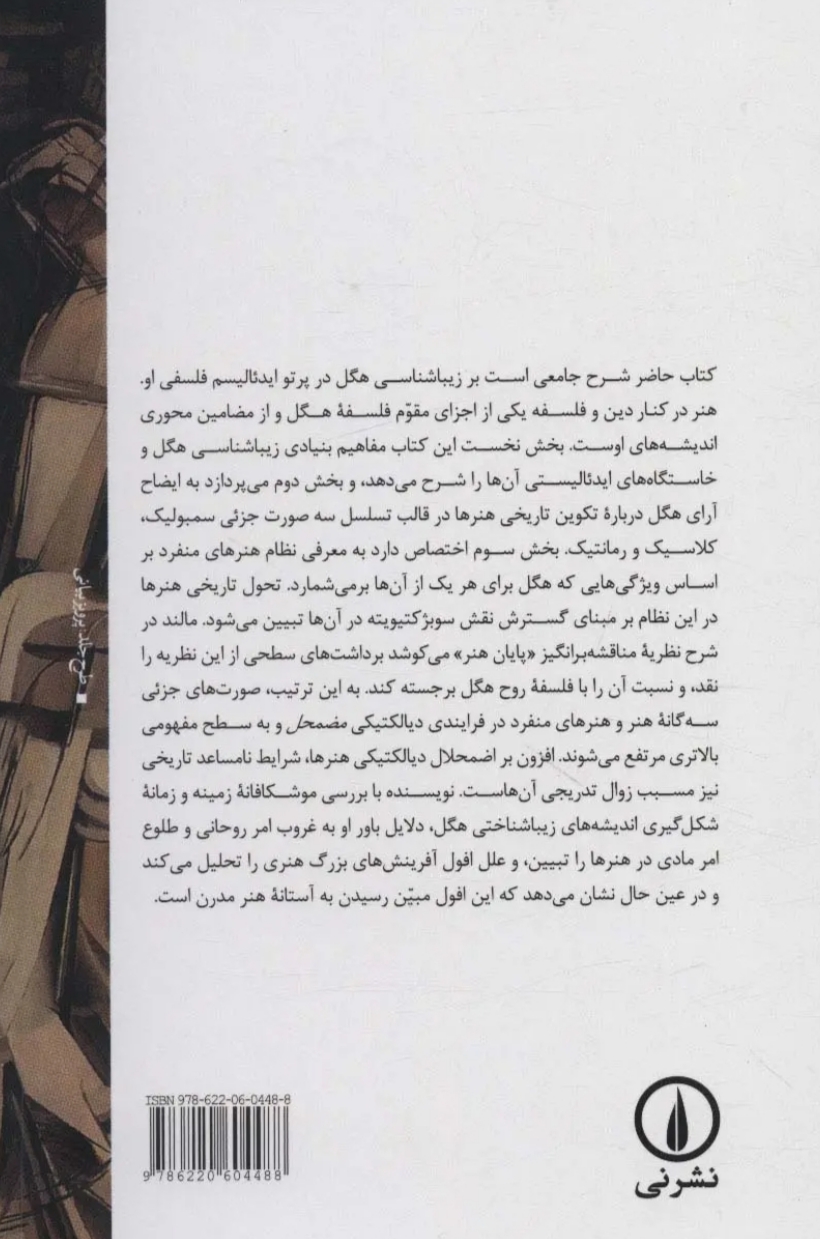 کتاب حاضر شرح جامعی است بر زیباشناسی هگل در پرتو ایدئالیسم فلسفی او.
هنر در کنار دین و فلسفه یکی از اجزای مقوّم فلسفهٔ هگل و از مضامین محوری
اندیشه‌های اوست. بخش نخست این کتاب مفاهیم بنیادی زیباشناسی هگل و
خاستگاه‌های ایدئالیستی آن‌ها را شرح می‌دهد، و بخش دوم می‌پردازد به ایضاح
آرای هگل دربارهٔ تکوین تاریخی هنرها در قالب تسلسل سه صورت جزئی سمبولیک،
کلاسیک و رمانتیک. بخش سوم اختصاص دارد به معرفی نظام هنرهای منفرد بر
اساس ویژگی‌هایی که هگل برای هر یک از آن‌ها برمی‌شمارد. تحول تاریخی هنرها
در این نظام بر مبنای گسترش نقش سوبژکتیویته در آن‌ها تبیین می‌شود. مالند در
شرح نظریهٔ مناقشه‌برانگیز «پایان هنر» می‌کوشد برداشت‌های سطحی از این نظریه را
نقد، و نسبت آن را با فلسفهٔ روح هگل برجسته کند. به این ترتیب، صورت‌های جزئی
سه‌گانهٔ هنر و هنرهای منفرد در فرایندی دیالکتیکی مضمحل و به سطح مفهومی
بالاتری مرتفع می‌شوند. افزون بر اضمحلال دیالکتیکی هنرها، شرایط نامساعد تاریخی
نیز مسبب زوال تدریجی آن‌هاست. نویسنده با بررسی موشکافانهٔ زمینه و زمانهٔ
شکل‌گیری اندیشه‌های زیباشناختی هگل، دلایل باور او به غروب امر روحانی و طلوع
امر مادی در هنرها را تبیین، و علل افول آفرینش‌های بزرگ هنری را تحلیل می‌کند
و در عین حال نشان می‌دهد که این افول مبیّن رسیدن به آستانهٔ هنر مدرن است.
طرح جلد: پرویز بیانی
ISBN 978-622-06-0448-8
9 786220 604488
نشرنی